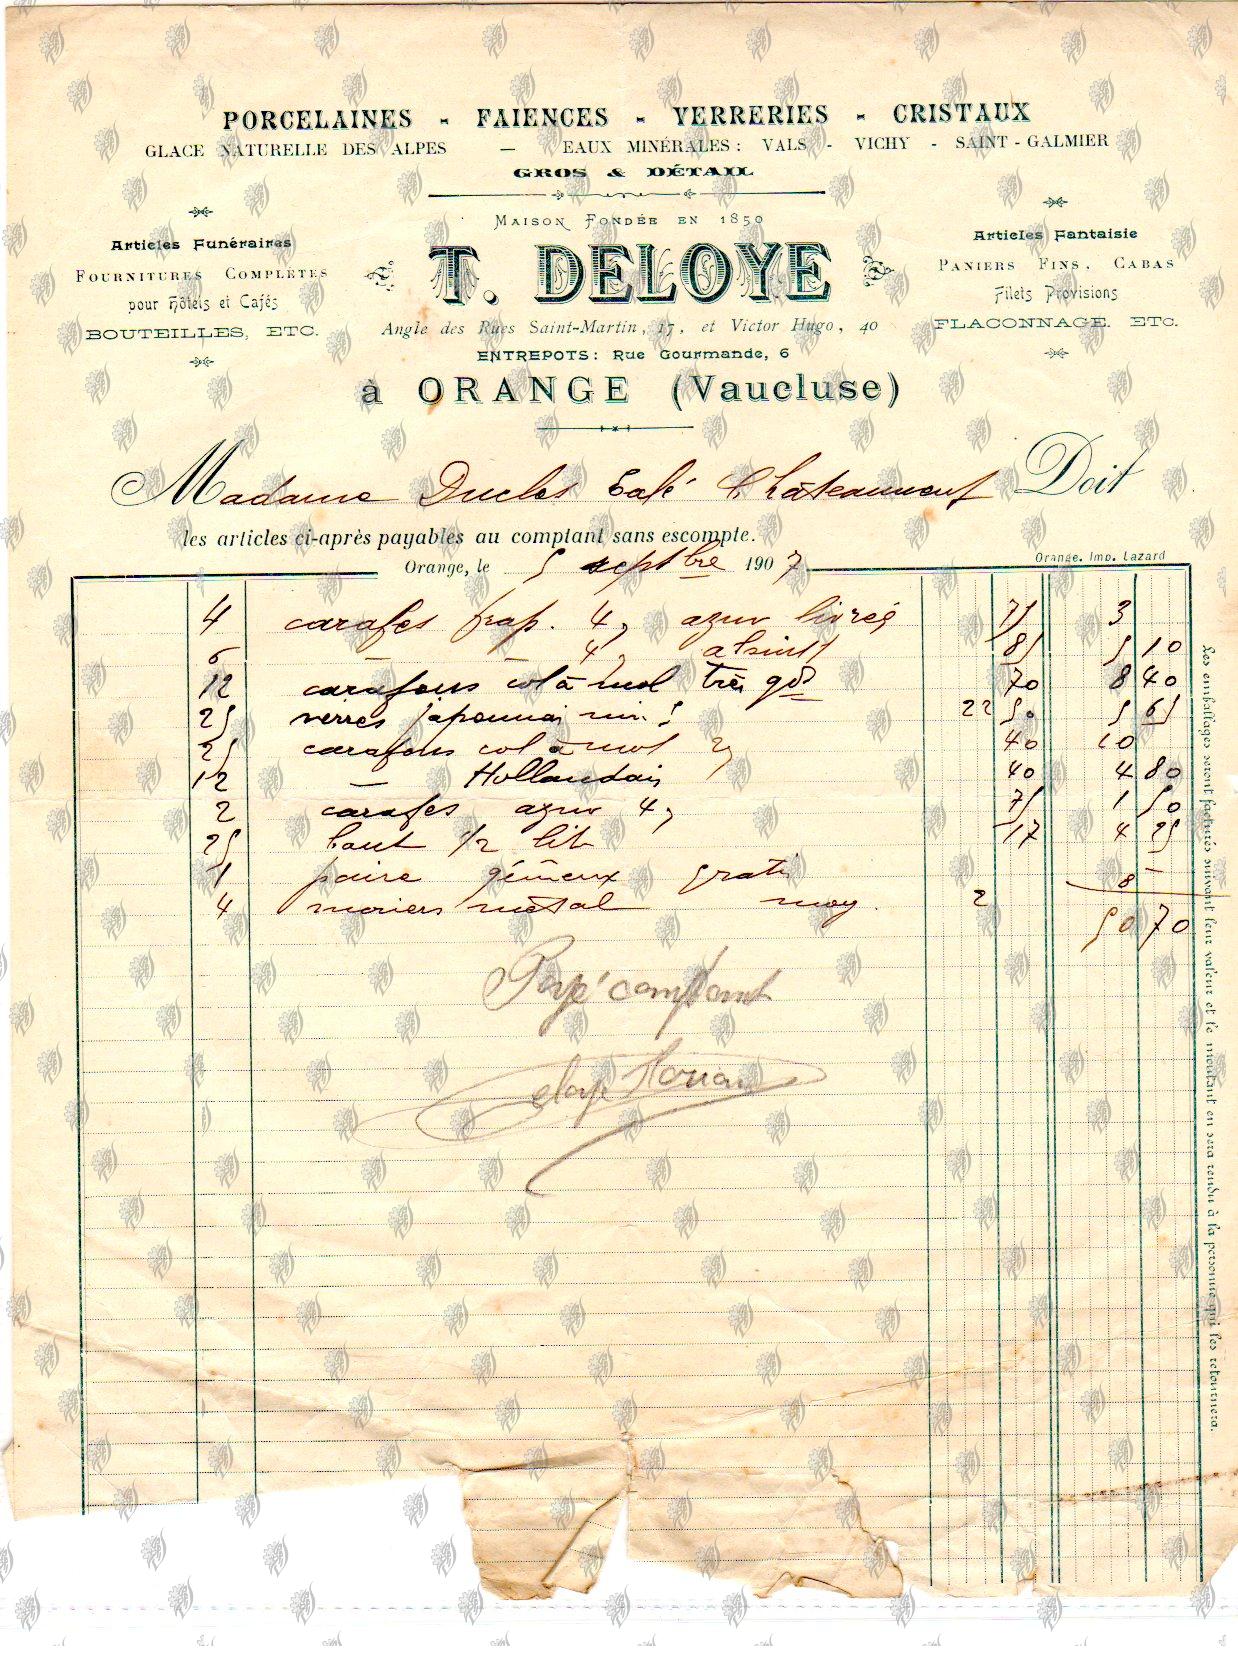 PORCELAINES - FAIENCES - VERRERIES - CRISTAUX
GLACE NATURELLE DES ALPES — EAUX MINÉRALES : VALS - VICHY - SAINT-GALMIER
GROS & DÉTAIL
MAISON FONDÉE EN 1850
T. DELOYE
Angle des Rues Saint-Martin, 17, et Victor Hugo, 40
ENTREPOTS : Rue Gourmande, 6
à ORANGE (Vaucluse)
Articles Funéraires
FOURNITURES COMPLÈTES
pour Hôtels et Cafés
BOUTEILLES, ETC.
Articles Fantaisie
PANIERS FINS, CABAS
Filets Provisions
FLACONNAGE. ETC.
Madame Duclos Café Châteauneuf Doit
les articles ci-après payables au comptant sans escompte.
Orange, le 5 septbre 1907
Orange. Imp. Lazard
4 carafes frap. 4, azur 75 3
6 — — 4, 85 5 10
12 carafons col à mol très gds 70 8 40
25 verres japonnai 22 50 5 65
25 carafons col à mol 40 10
12 — Hollandais 40 4 80
2 carafes azur 4, 75 1 50
25 1/2 lit 17 4 25
1 paire gratis
4 métal moy. 2 8 —
50 70
Payé comptant
Les emballages seront facturés suivant leur valeur et le montant en sera rendu à la personne qui les retournera.